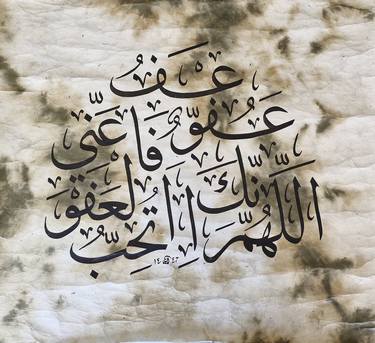 اللّهُمَّ إنَّكَ عَفُوٌّ تُحِبُّ العَفْوَ فَاعْفُ عَنِّي